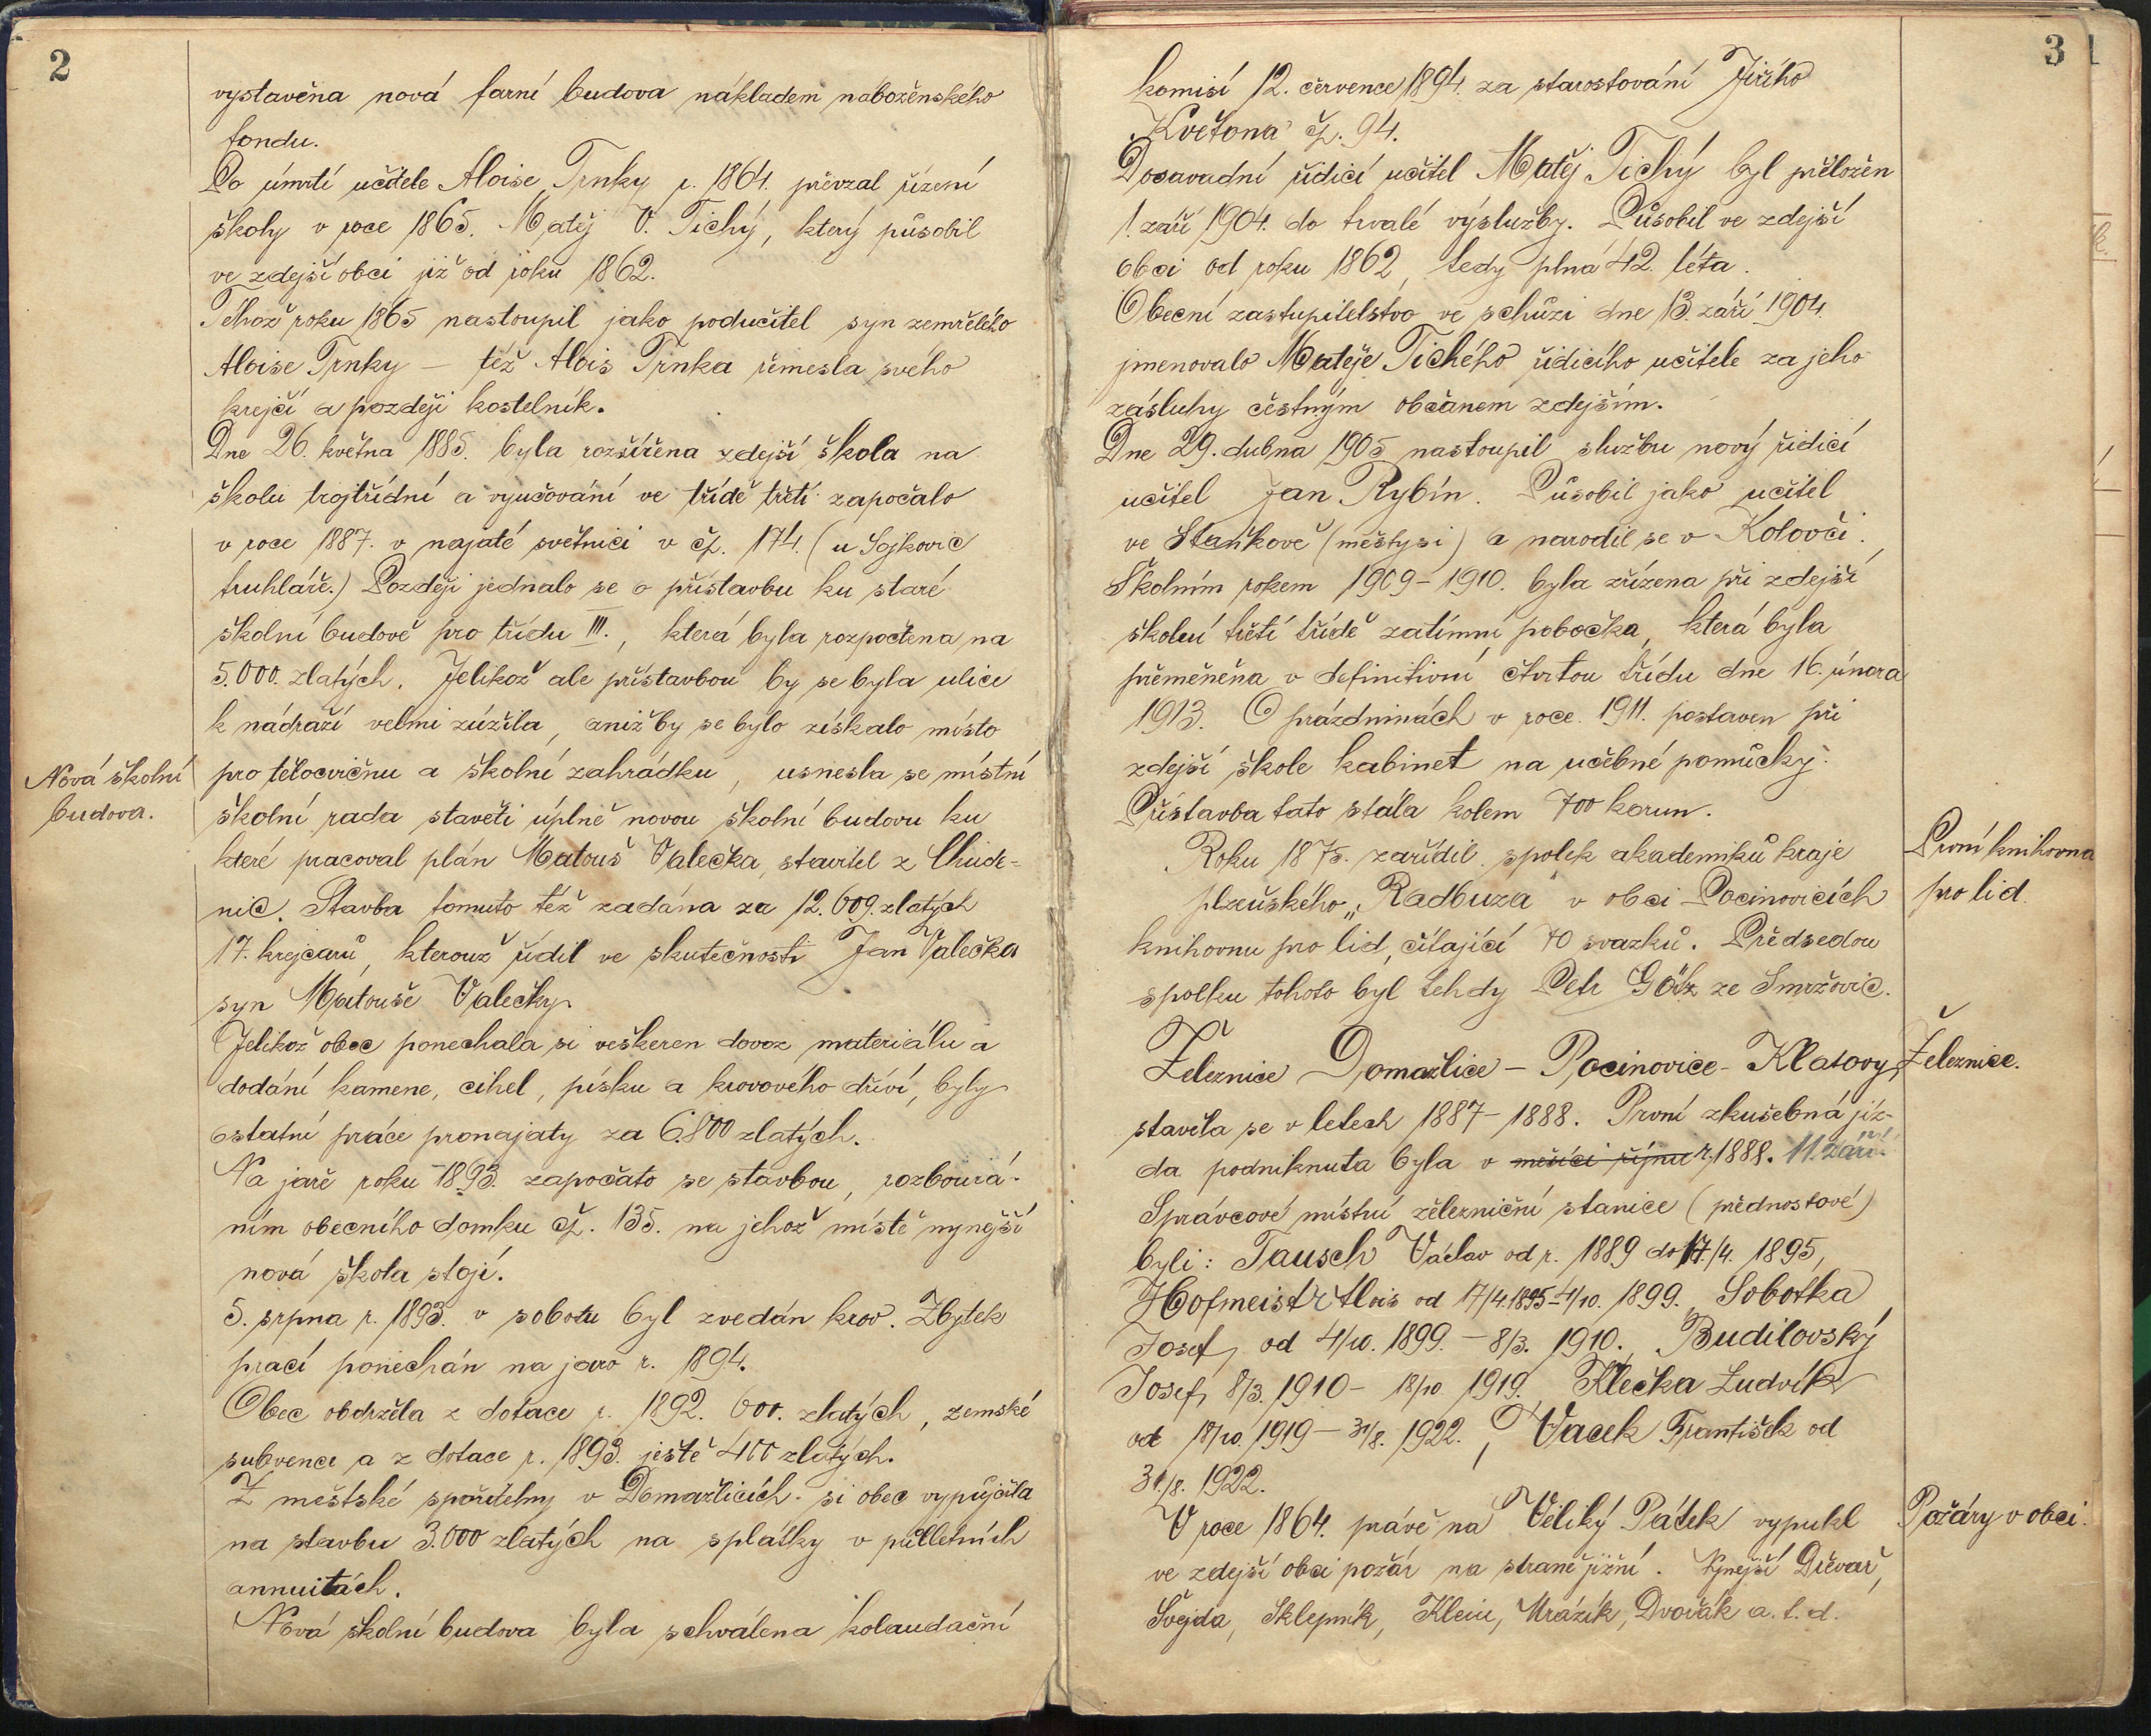 2
vystavěna nová farní budova nákladem náboženského
fondu.
Po úmrtí učitele Aloise Trnky r. 1864. převzal řízení
školy v roce 1865. Matěj V. Tichý, který působil
ve zdejší obci již od roku 1862.
Téhož roku 1865 nastoupil jako podučitel syn zemřelého
Aloise Trnky – též Alois Trnka řemesla svého
krejčí a později kostelník.
Dne 26. května 1885. byla rozšířena zdejší škola na
školu trojtřídní a vyučování ve třídě třetí započalo
v roce 1887. v najaté světnici v čp. 174. (u Sojkovic
truhláře.) Později jednalo se o přístavbu ku staré
školní budově pro třídu III., která byla rozpočtena na
5.000. zlatých. Jelikož ale přístavbou by se byla ulice
k nádraží velmi zúžila, aniž by se bylo získalo místo
Nová školní
budova.
pro tělocvičnu a školní zahrádku, usnesla se místní
školní rada stavěti úplně novou školní budovu ku
které pracoval plán Matouš Valečka, stavitel z Chude-
nic. Stavba tomuto též zadána za 12.609. zlatých
17. krejcarů, kterouž řídil ve skutečnosti Jan Valečka
syn Matouše Valečky.
Jelikož obec ponechala si veškeren dovoz materiálu a
dodání kamene, cihel, písku a krovového dříví, byly
ostatní práce pronajaty za 6.800 zlatých.
Na jaře roku 1893. započato se stavbou, rozbourá-
ním obecního domku čp. 135. na jehož místě nynější
nová škola stojí.
5. srpna r. 1893. v sobotu byl zvedán krov. Zbytek
prací ponechán na jaro r. 1894.
Obec obdržela z dotace r. 1892. 600. zlatých, zemské
subvence a z dotace r. 1893. ještě 400 zlatých.
Z městské spořitelny v Domažlicích si obec vypůjčila
na stavbu 3.000 zlatých na splátky v půlletních
annuitách.
Nová školní budova byla schválena kolaudační
3
komisí 12. července 1894. za starostování Jiřího
Květona čp. 94.
Dosavadní řídící učitel Matěj Tichý byl přeložen
1. září 1904. do trvalé výslužby. Působil ve zdejší
obci od roku 1862, tedy plná 42. léta.
Obecní zastupitelstvo ve schůzi dne 13. září 1904.
jmenovalo Matěje Tichého řídicího učitele za jeho
zásluhy čestným občanem zdejším.
Dne 29. dubna 1905 nastoupil službu nový řídicí
učitel Jan Rybín. Působil jako učitel
ve Staňkově (městysi) a narodil se v Kolovči.
Školním rokem 1909–1910. byla zřízena při zdejší
školní třetí třídě zatímní pobočka, která byla
přeměněna v definitivní čtvrtou třídu dne 16. února
1913. O prázdninách v roce 1911. postaven při
zdejší škole kabinet na učebné pomůcky.
Přístavba tato stála kolem 700 korun.
První knihovna
pro lid.
Roku 1875. zařídil spolek akademiků kraje
plzeňského „Radbuza“ v obci Pocinovicích
knihovnu pro lid, čítající 70 svazků. Předsedou
spolku tohoto byl tehdy Petr Götz ze Smržovic.
Železnice.
Železnice Domažlice – Pocinovice – Klatovy,
stavěla se v letech 1887–1888. První zkušebná jíz-
da podniknuta byla v měsíci říjnu r. 1888. 11. září.
Správcové místní železniční stanice (přednostové)
byli: Tausch Václav od r. 1889 do 17./4. 1895,
Hofmeistr Alois od 17/4. 1895–4/10. 1899. Sobotka
Josef, od 4/10. 1899. – 8/3. 1910. Budilovský
Josef, 8/3. 1910 – 18/10 1919. Klečka Ludvík
od 18/10. 1919 – 31/8. 1922., Vacek František od
31./8. 1922.
Požáry v obci.
V roce 1864. právě na Veliký Pátek vypukl
ve zdejší obci požár na straně jižní. Nynější Dřevař,
Švejda, Sklepník, Klein, Mrázík, Dvořák a. t. d.